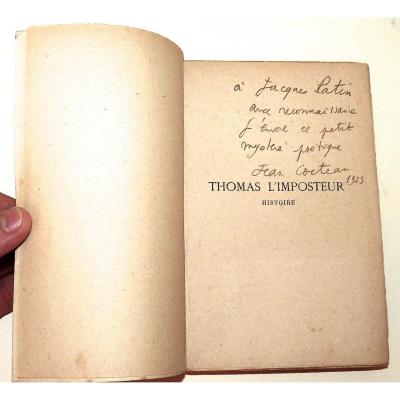 à Jacques Patin
avec reconnaissance
j'envoie ce petit
mystère poétique
Jean Cocteau
1923
THOMAS L'IMPOSTEUR
HISTOIRE